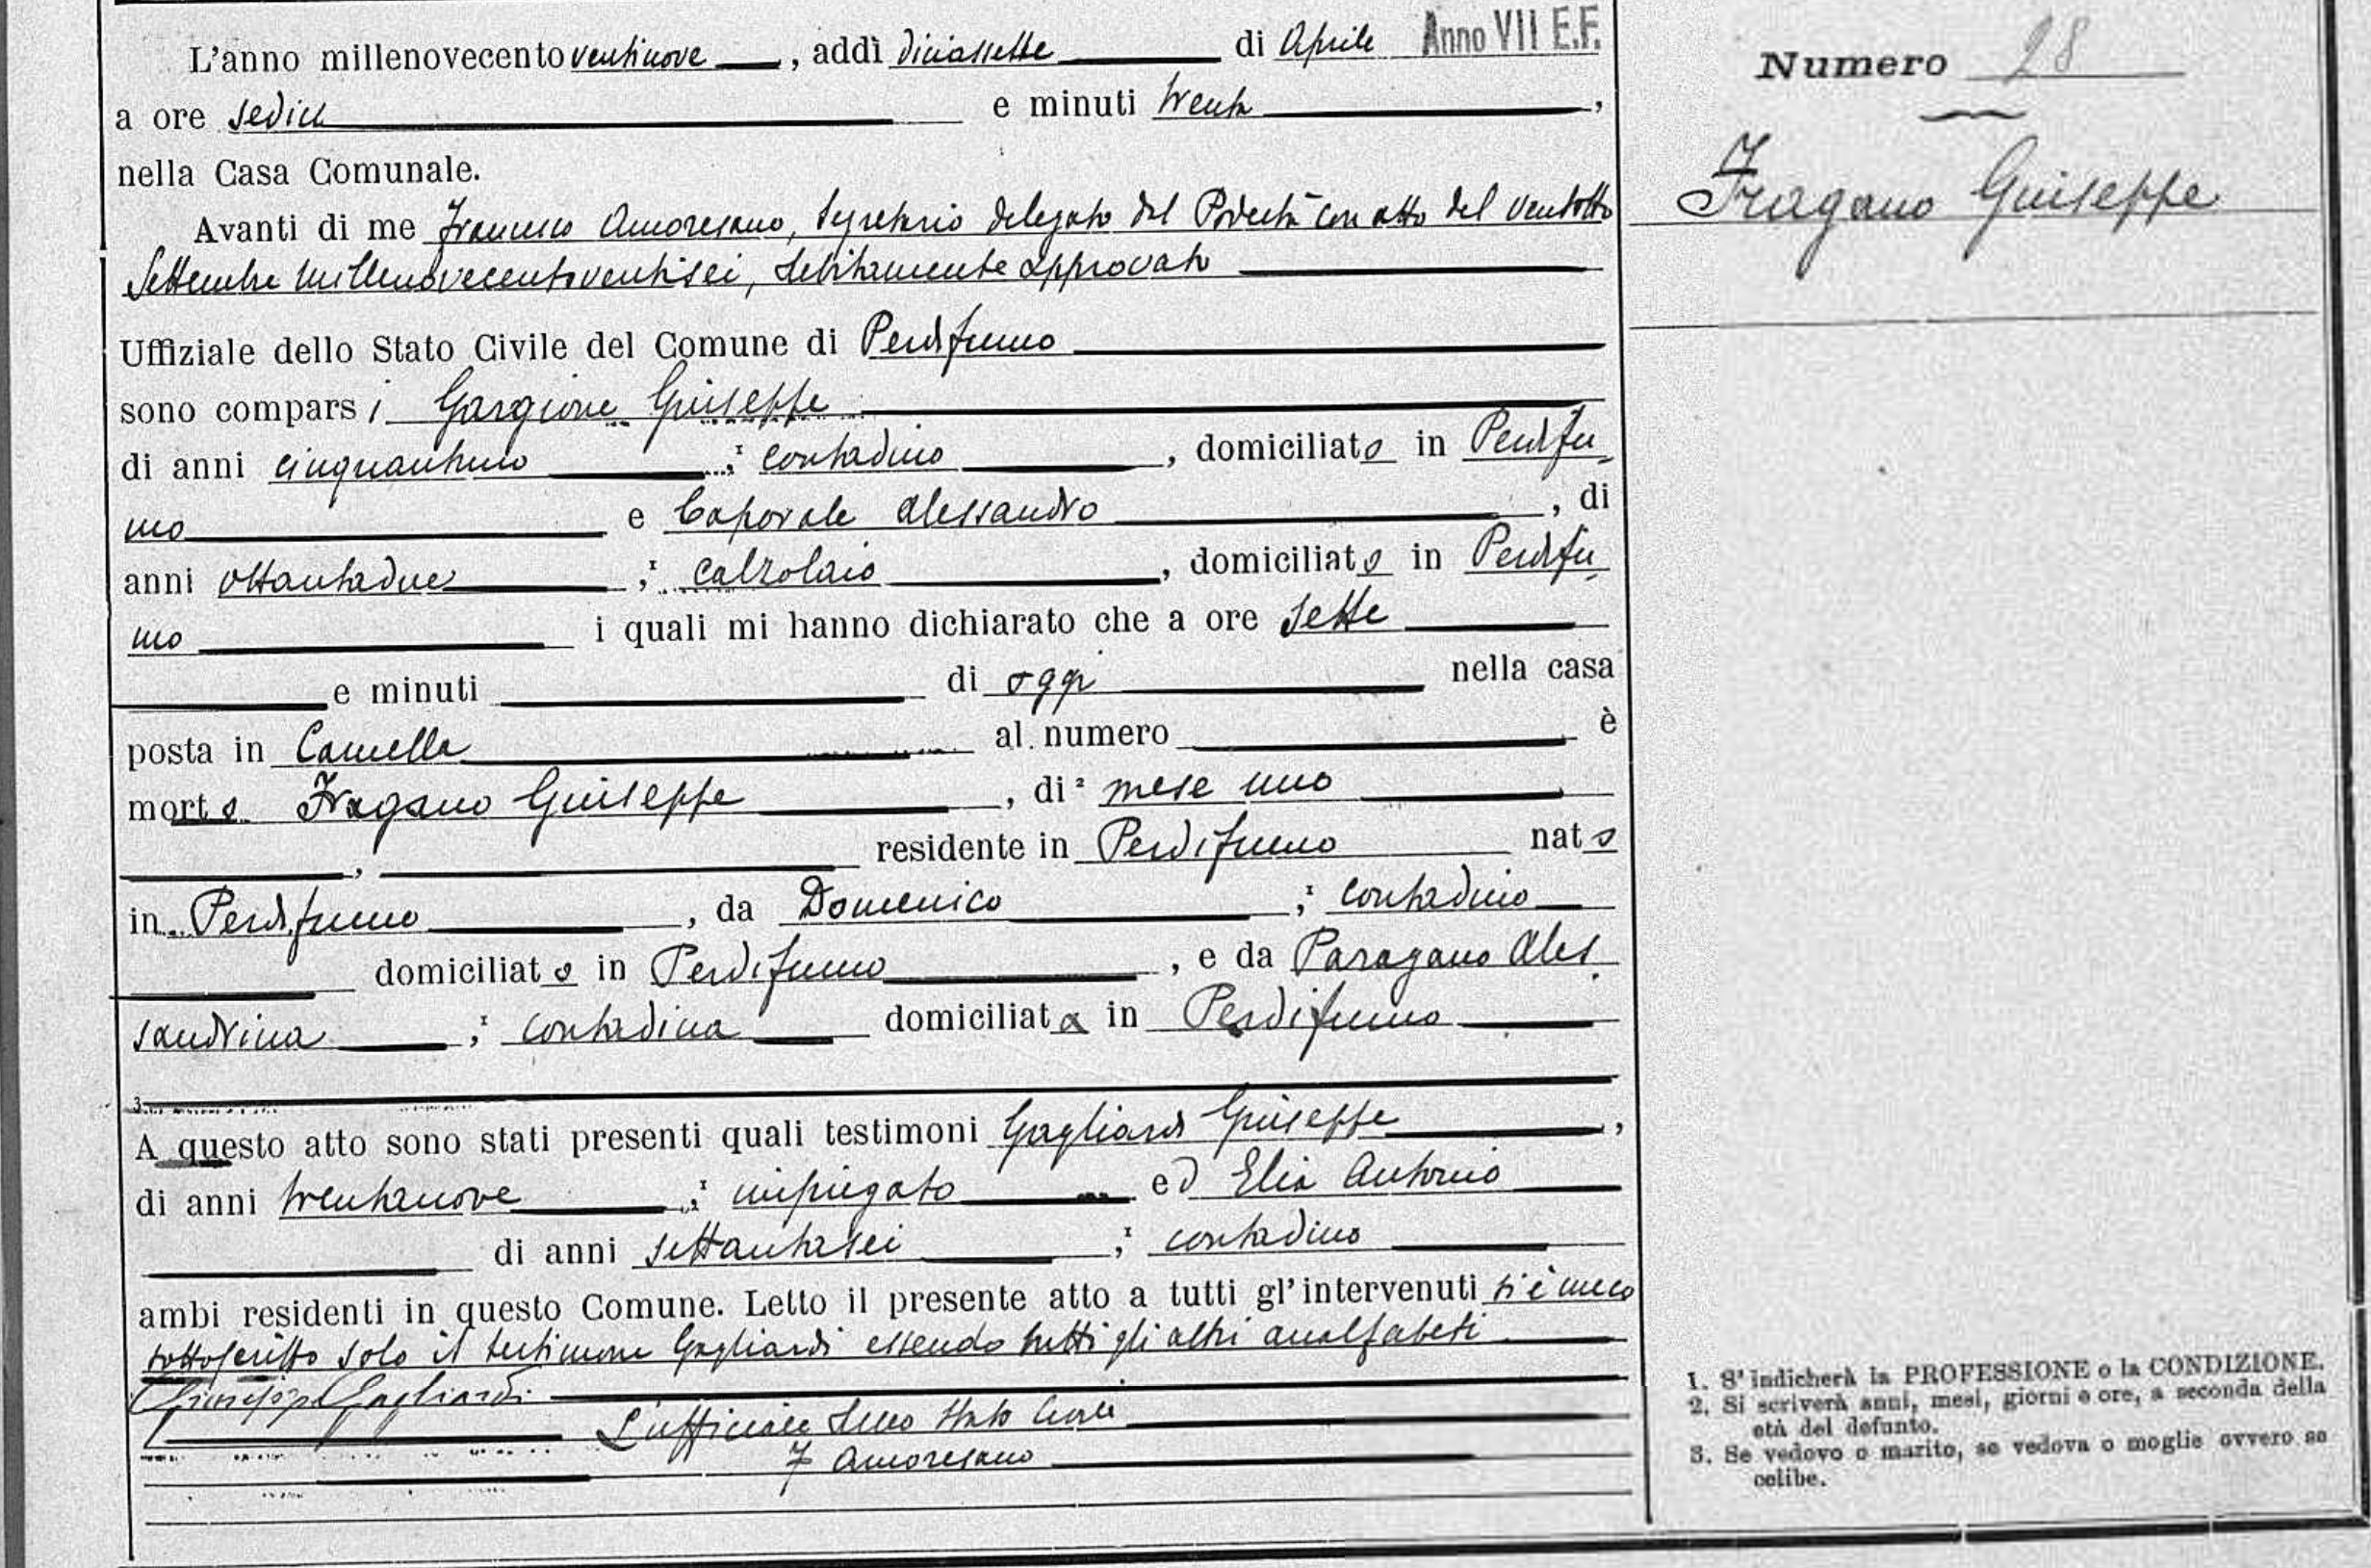 L'anno millenovecento ventinove, addì diciassette di Aprile Anno VII E.F.
a ore sedici e minuti trenta,
nella Casa Comunale.
Avanti di me Francesco Amoresano, Segretario delegato dal Podestà con atto del ventotto
Settembre millenovecentoventisei, debitamente approvato
Uffiziale dello Stato Civile del Comune di Perdifumo
sono comparsi Gargione Giuseppe
di anni cinquantuno, ¹ contadino, domiciliato in Perdifu
mo e Caporale Alessandro, di
anni ottantadue, ¹ calzolaio, domiciliato in Perdifu
mo i quali mi hanno dichiarato che a ore sette
e minuti di oggi nella casa
posta in Camella al numero è
morto Fragano Giuseppe, di ² mese uno
, residente in Perdifumo nato
in Perdifumo, da Domenico, ¹ contadino
domiciliato in Perdifumo, e da Paragano Ales
sandrina, ¹ contadina domiciliata in Perdifumo
3
A questo atto sono stati presenti quali testimoni Gagliardi Giuseppe,
di anni trentanove, ¹ impiegato ed Elia Antonio
di anni settantasei, ¹ contadino
ambi residenti in questo Comune. Letto il presente atto a tutti gl'intervenuti si è meco
sottoscritto solo il testimone Gagliardi essendo tutti gli altri analfabeti
Giuseppe Gagliardi
L'ufficiale dello Stato Civile
F Amoresano
Numero 28
Fragano Giuseppe
1. S'indicherà la PROFESSIONE o la CONDIZIONE.
2. Si scriverà anni, mesi, giorni e ore, a seconda della
età del defunto.
3. Se vedovo o marito, se vedova o moglie ovvero se
celibe.